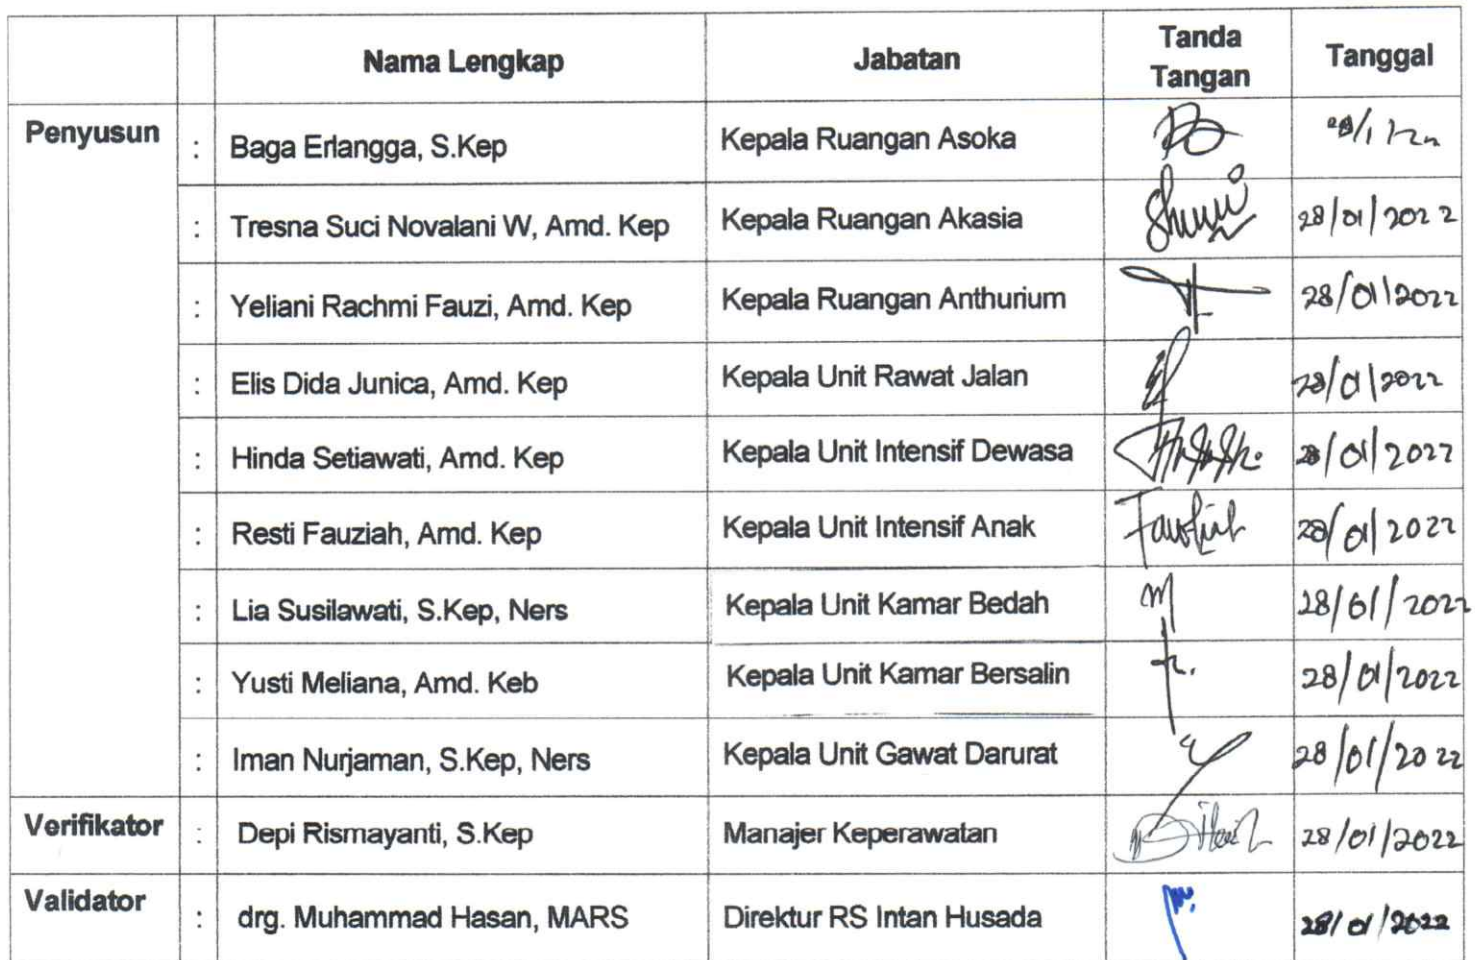 Nama Lengkap Jabatan Tanda Tangan Tanggal
Penyusun : Baga Erlangga, S.Kep Kepala Ruangan Asoka
: Tresna Suci Novalani W, Amd. Kep Kepala Ruangan Akasia 28/01/2022
: Yeliani Rachmi Fauzi, Amd. Kep Kepala Ruangan Anthurium 28/01/2022
: Elis Dida Junica, Amd. Kep Kepala Unit Rawat Jalan 28/01/2022
: Hinda Setiawati, Amd. Kep Kepala Unit Intensif Dewasa 28/01/2022
: Resti Fauziah, Amd. Kep Kepala Unit Intensif Anak 28/01/2022
: Lia Susilawati, S.Kep, Ners Kepala Unit Kamar Bedah 28/01/2022
: Yusti Meliana, Amd. Keb Kepala Unit Kamar Bersalin 28/01/2022
: Iman Nurjaman, S.Kep, Ners Kepala Unit Gawat Darurat 28/01/2022
Verifikator : Depi Rismayanti, S.Kep Manajer Keperawatan 28/01/2022
Validator : drg. Muhammad Hasan, MARS Direktur RS Intan Husada 28/01/2022